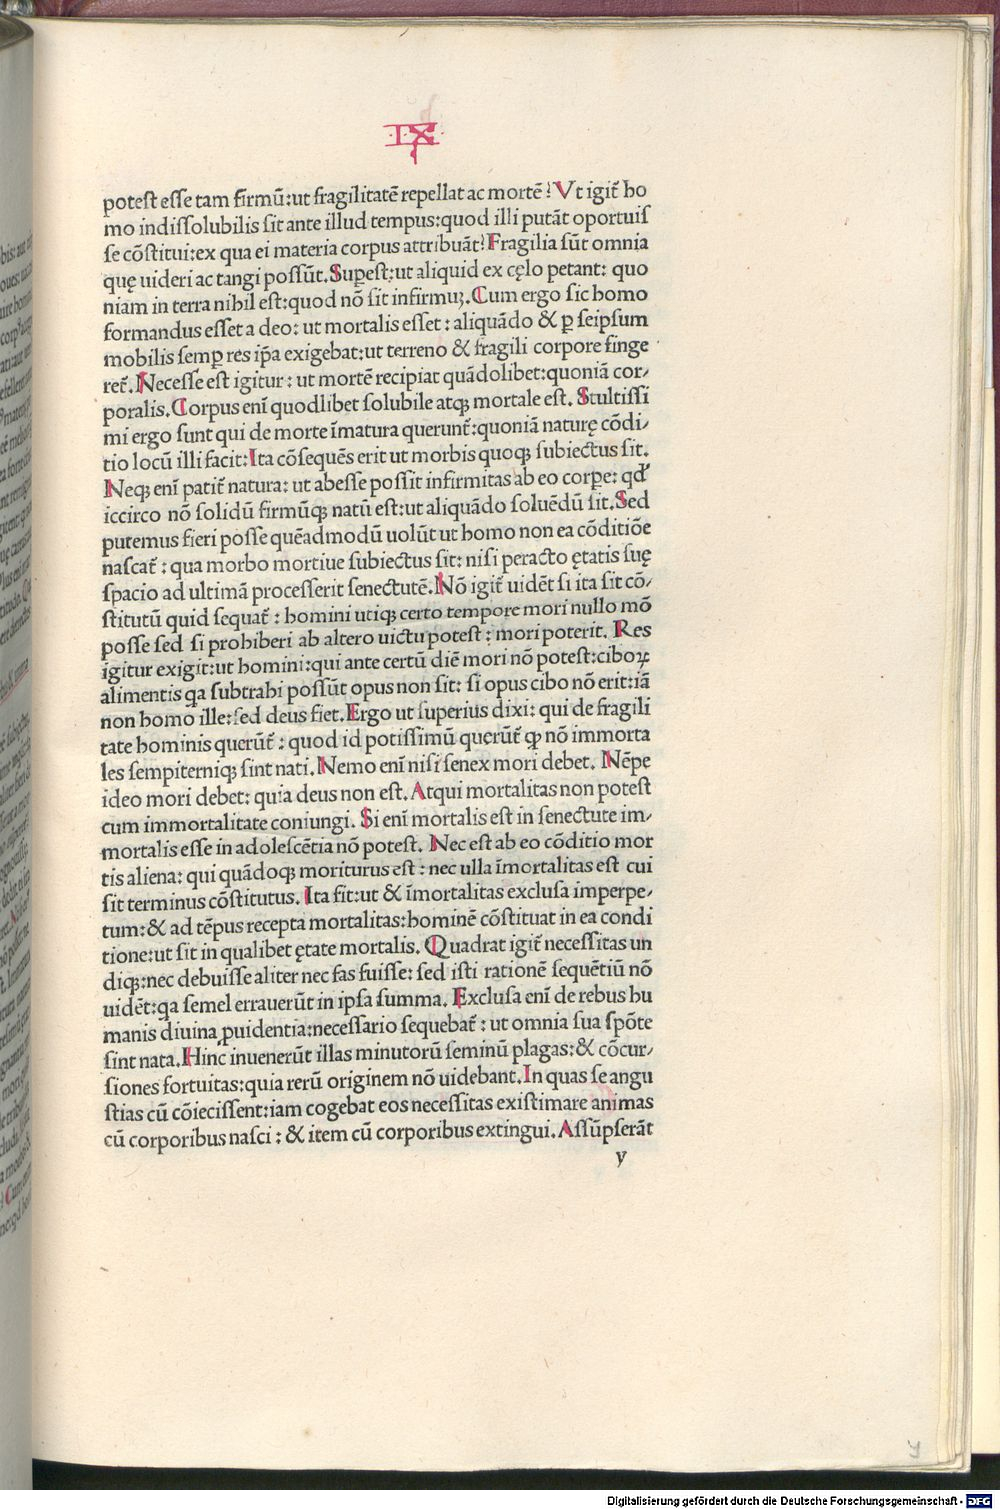 IX
poteſt eſſe tam firmū:ut fragilitatē repellat ac mortē? Vt igit̄ ho
mo indiſſolubilis ſit ante illud tempus:quod illi putāt oportuiſ
ſe cōſtitui:ex qua ei materia corpus attribuāt? Fragilia ſūt omnia
quę uideri ac tangi poſſūt. Supeſt: ut aliquid ex cęlo petant: quo
niam in terra nihil eſt:quod nō ſit infirmuꝫ. Cum ergo ſic homo
formandus eſſet a deo: ut mortalis eſſet: aliquādo & ꝑ ſeipſum
mobilis ſemꝑ res ip̄a exigebat:ut terreno & fragili corpore finge
ret̄. Neceſſe eſt igitur: ut mortē recipiat quādolibet:quoniā cor/
poralis. Corpus eni̅ quodlibet ſolubile atqꝫ mortale eſt. Stultiſſi
mi ergo ſunt qui de morte ı̄matura querunt̄:quoniā naturę cōdi/
tio locū illi facit: Ita cōſequēs erit ut morbis quoqꝫ ſubiectus ſit.
Neqꝫ enı̄ patit̄ natura: ut abeſſe poſſit infirmitas ab eo corꝑe: qd̕
iccirco nō ſolidū firmūqꝫ natū eſt:ut aliquādo ſoluēdū ſit. Sed
putemus fieri poſſe quēadmodū uolūt ut homo non ea cōditiōe
naſcat̄: qua morbo mortiue ſubiectus ſit: niſi peracto ętatis ſuę
ſpacio ad ultimā proceſſerit ſenectutē. Nō igit̄ uidēt ſi ita ſit cō/
ſtitutū quid ſequat̄: homini utiqꝫ certo tempore mori nullo mō
poſſe ſed ſi prohiberi ab altero uictu poteſt: mori poterit. Res
igitur exigit:ut homini:qui ante certū diē mori nō poteſt:ciboꝝ
alimentis qa ſubtrahi poſſūt opus non ſit: ſi opus cibo nō erit:iā
non homo ille:ſed deus fiet. Ergo ut ſuperius dixi: qui de fragili
tate hominis querūt̄: quod id potiſſimū querūt̄ ꝙ nō immorta
les ſempiterniqꝫ ſint nati. Nemo enı̄ niſi ſenex mori debet. Nēpe
ideo mori debet: quia deus non eſt. Atqui mortalitas non poteſt
cum immortalitate coniungi. Si enı̄ mortalis eſt in ſenectute im/
mortalis eſſe in adoleſcētia nō poteſt. Nec eſt ab eo cōditio mor
tis aliena: qui quādoqꝫ moriturus eſt: nec ulla ı̄mortalitas eſt cui
ſit terminus cōſtitutus. Ita fit:ut & ı̄mortalitas excluſa imperpe/
tum:& ad tēpus recepta mortalitas:hominē cōſtituat in ea condi
tione:ut ſit in qualibet ętate mortalis. Quadrat igit̄ neceſſitas un
diqꝫ:nec debuiſſe aliter nec fas fuiſſe: ſed iſti rationē ſequētiū nō
uidēt:qa ſemel errauerūt in ipſa ſumma. Excluſa enı̄ de rebus hu
manis diuina ꝓuidentia:neceſſario ſequebat̄: ut omnia ſua ſpōte
ſint nata. Hinc inuenerūt illas minutorū ſeminū plagas:& cōcur/
ſiones fortuitas:quia rerū originem nō uidebant. In quas ſe angu
ſtias cū cōieciſſent:iam cogebat eos neceſſitas exiſtimare animas
cū corporibus naſci: & item cū corporibus extingui. Aſſūpſerāt
y
Digitalisierung gefördert durch die Deutsche Forschungsgemeinschaft - DFG